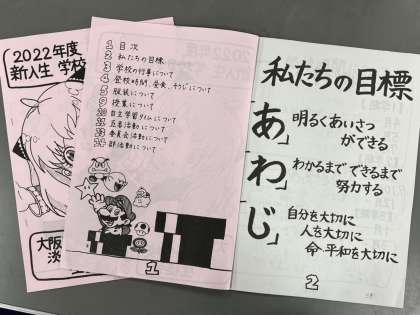 2022年度
新入生 学校
大阪
淡
1 目次
2 私たちの目標
3 学校の行事について
4 登校時間、昼食、そうじについて
5 服装について
9 授業について
10 自主学習タイムについて
12 五者活動について
13 委員会活動について
14 部活動について
1
私たちの目標
「あ」明るくあいさつ
ができる
「わ」わかるまで できるまで
努力する
「じ」自分を大切に
人を大切に
命・平和を大切に
2